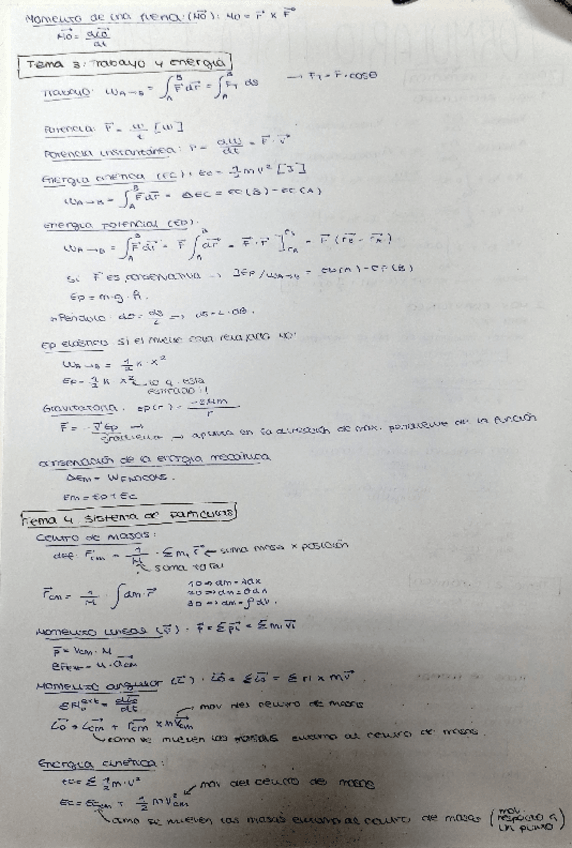 Momento de una fuerza: (M⃗O): Mo = r⃗ x F⃗
M⃗O = dL⃗O/dt
Tema 3: Trabajo y energía
Trabajo: WA→B = ∫_A^B F⃗ dr⃗ = ∫_A^B FT ds → FT = F · cosθ
Potencia: P = W/t [W]
Potencia instantánea: P = dW/dt = F⃗ · v⃗
Energía cinética (EC): Ec = 1/2 m v² [J]
WA→B = ∫_A^B F⃗ dr⃗ = ΔEC = EC(B) - EC(A)
Energía potencial (EP):
WA→B = ∫_A^B F⃗ dr⃗ = F⃗ ∫_A^B dr⃗ = F⃗ · r⃗ ]_rA^rB = F⃗ (r⃗B - r⃗A)
Si F⃗ es conservativa → ∃Ep / WA→B = EP(A) - EP(B)
Ep = m·g·h.
Ep elástica si el muelle está relajado
WA→B = 1/2 k · x²
Ep = 1/2 k x² lo q. está estirado!
Gravitatoria. Ep(r) =
F⃗ = -∇⃗Ep →
gradiente → apunta en la dirección de max. pendiente de la función
conservación de la energía mecánica
ΔEm = WFNOCONS.
Em = EP + EC
Tema 4. Sistema de partículas
Centro de masas:
def. r⃗cm = 1/M · Σ mi r⃗ ← suma masa x posición
suma total
r⃗cm = 1/M · ∫ dm · r⃗
1D → dm = λdx
2D → dm = σds
3D → dm = ρdv.
Momento lineal (p⃗) · p⃗ = Σp⃗i = Σmi v⃗i
p⃗ = vcm · M
ΣF⃗ext = M · a⃗cm
Momento angular (L⃗) · L⃗O = ΣL⃗o = Σ ri x mv⃗
ΣM⃗o^ext = dL⃗o/dt
mov del centro de masas
L⃗O = L⃗cm + r⃗cm x m v⃗cm
como se mueven las masas entorno al centro de masas.
Energía cinética:
Ec = Σ 1/2 m · v²
mov del centro de masas
Ec = Eccm + 1/2 m v²cm
como se mueven las masas entorno al centro de masas (mov. respecto a un punto)